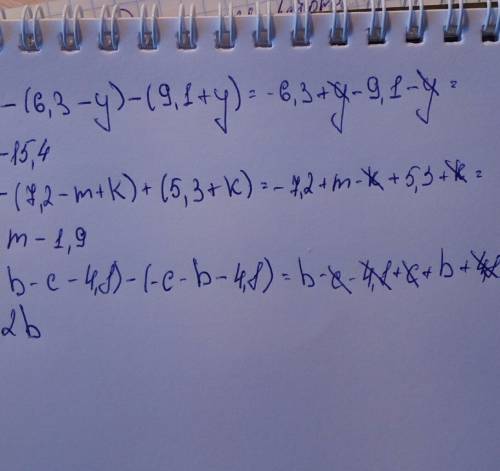 -(6,3-y)-(9,1+y)=-6,3+y-9,1-y=
-15,4
-(7,2-m+k)+(5,3+k)=-7,2+m-k+5,3+k=
m-1,9
b-c-4,8)-(-c-b-4,8)=b-c-4,8+c+b+4,8
2b